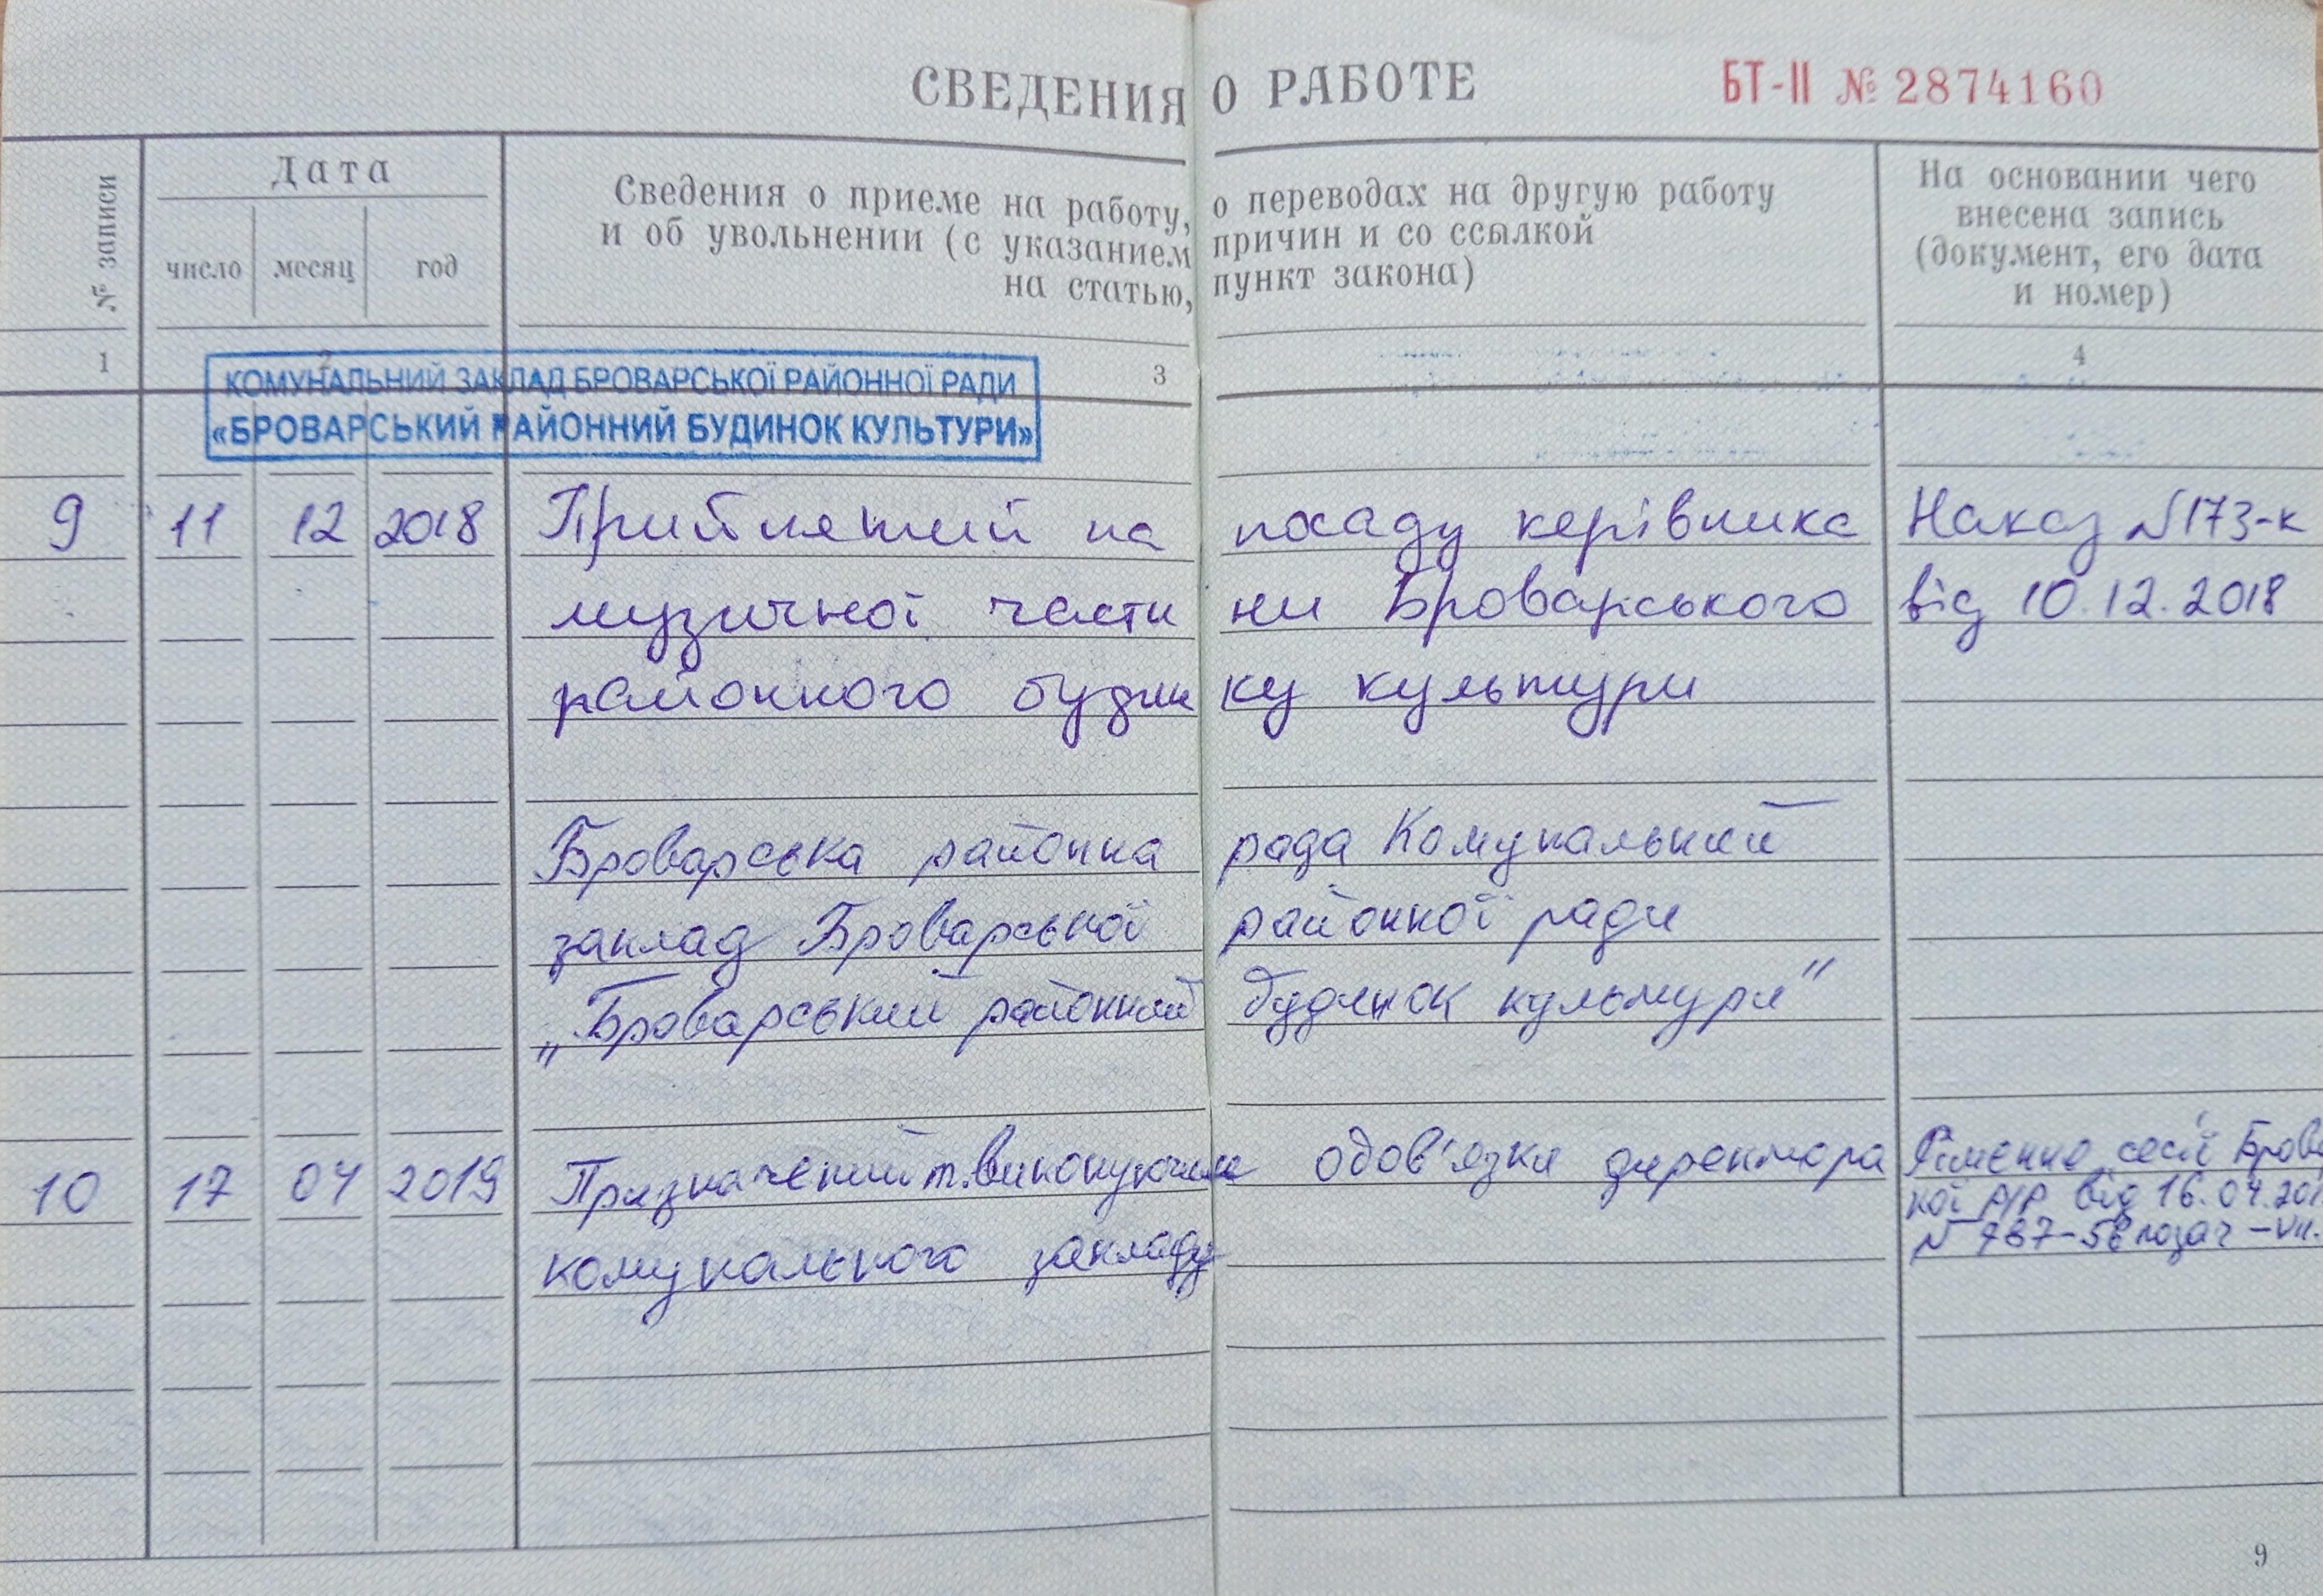 СВЕДЕНИЯ О РАБОТЕ
БТ-II № 2874160
№ записи
Дата
число месяц год
Сведения о приеме на работу, о переводах на другую работу
и об увольнении (с указанием причин и со ссылкой
на статью, пункт закона)
На основании чего
внесена запись
(документ, его дата
и номер)
1 2 3 4
КОМУНАЛЬНИЙ ЗАКЛАД БРОВАРСЬКОЇ РАЙОННОЇ РАДИ
«БРОВАРСЬКИЙ РАЙОННИЙ БУДИНОК КУЛЬТУРИ»
9 11 12 2018 Прийнятий на посаду керівника Наказ №173-к
музичної частини Броварського від 10.12.2018
районного будинку культури
Броварська районна рада Комунальний
заклад Броварської районної ради
„Броварський районний будинок культури"
10 17 04 2019 Призначений т. виконуючим обов'язки директора Рішення сесії Брова
кої р/р від 16.04.201
комунального закладу № 787-58 позач -VII.
9